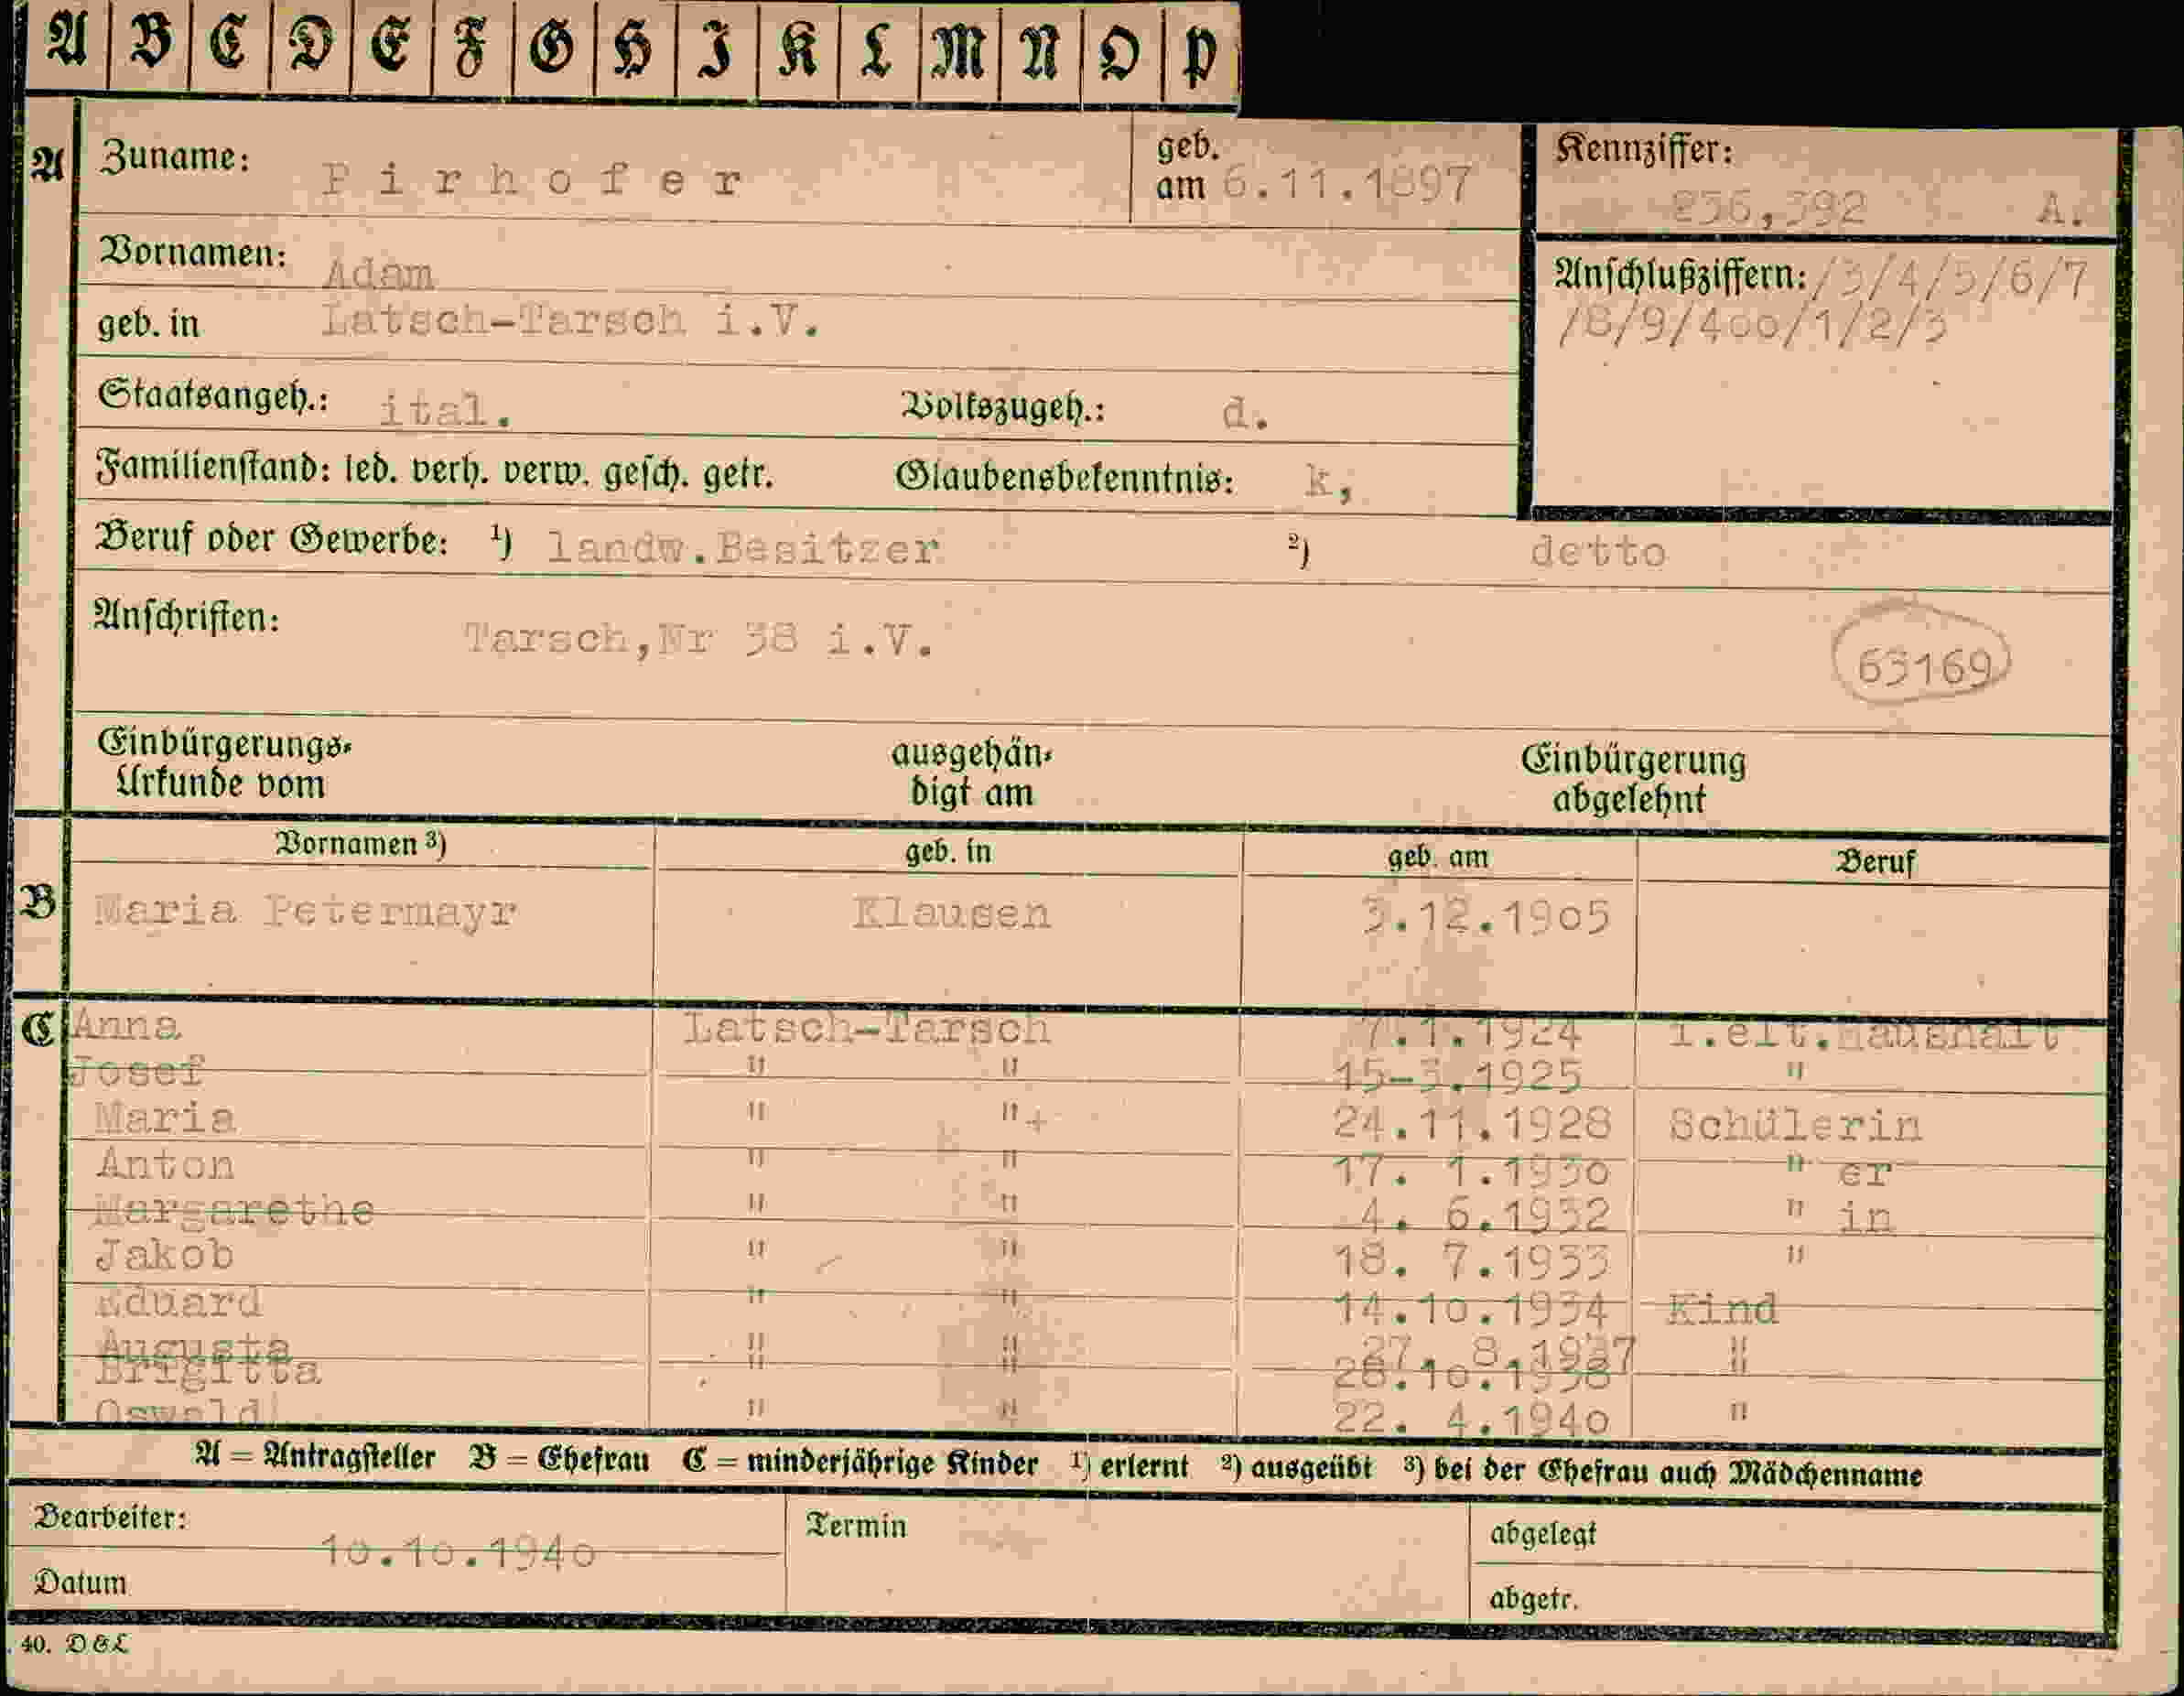 A B C D E F G H I K L M N O P
A Zuname: Pirhofer geb. am 6.11.1897 Kennziffer: 856,392 A.
Vornamen: Adam Anschlußziffern: /3/4/5/6/7
geb. in Latsch-Tarsch i.V. /8/9/400/1/2/3
Staatsangeh.: ital. Volkszugeh.: d.
Familienstand: led. verh. verw. gesch. getr. Glaubensbekenntnis: k,
Beruf oder Gewerbe: ¹) landw.Besitzer ²) detto
Anschriften: Tarsch,Nr 38 i.V. 63169
Einbürgerungs- ausgehän- Einbürgerung
Urkunde vom digt am abgelehnt
Vornamen ³) geb. in geb. am Beruf
B Maria Petermayr Klausen 3.12.1905
C Anna Latsch-Tarsch 7.1.1924 i.elt.Haushalt
Josef " " 15-3.1925 "
Maria " " + 24.11.1928 Schülerin
Anton " " 17. 1.1930 " er
Margarethe " " 4. 6.1932 " in
Jakob " " 18. 7.1933 "
Eduard " " 14.10.1934 Kind
Augusta " " 27. 8.1937 "
Brigitta " " 28.10.1938 "
Oswald " " 22. 4.1940 "
A = Antragsteller B = Ehefrau C = minderjährige Kinder ¹) erlernt ²) ausgeübt ³) bei der Ehefrau auch Mädchenname
Bearbeiter: Termin abgelegt
10.10.1940
Datum abgetr.
40. D&L